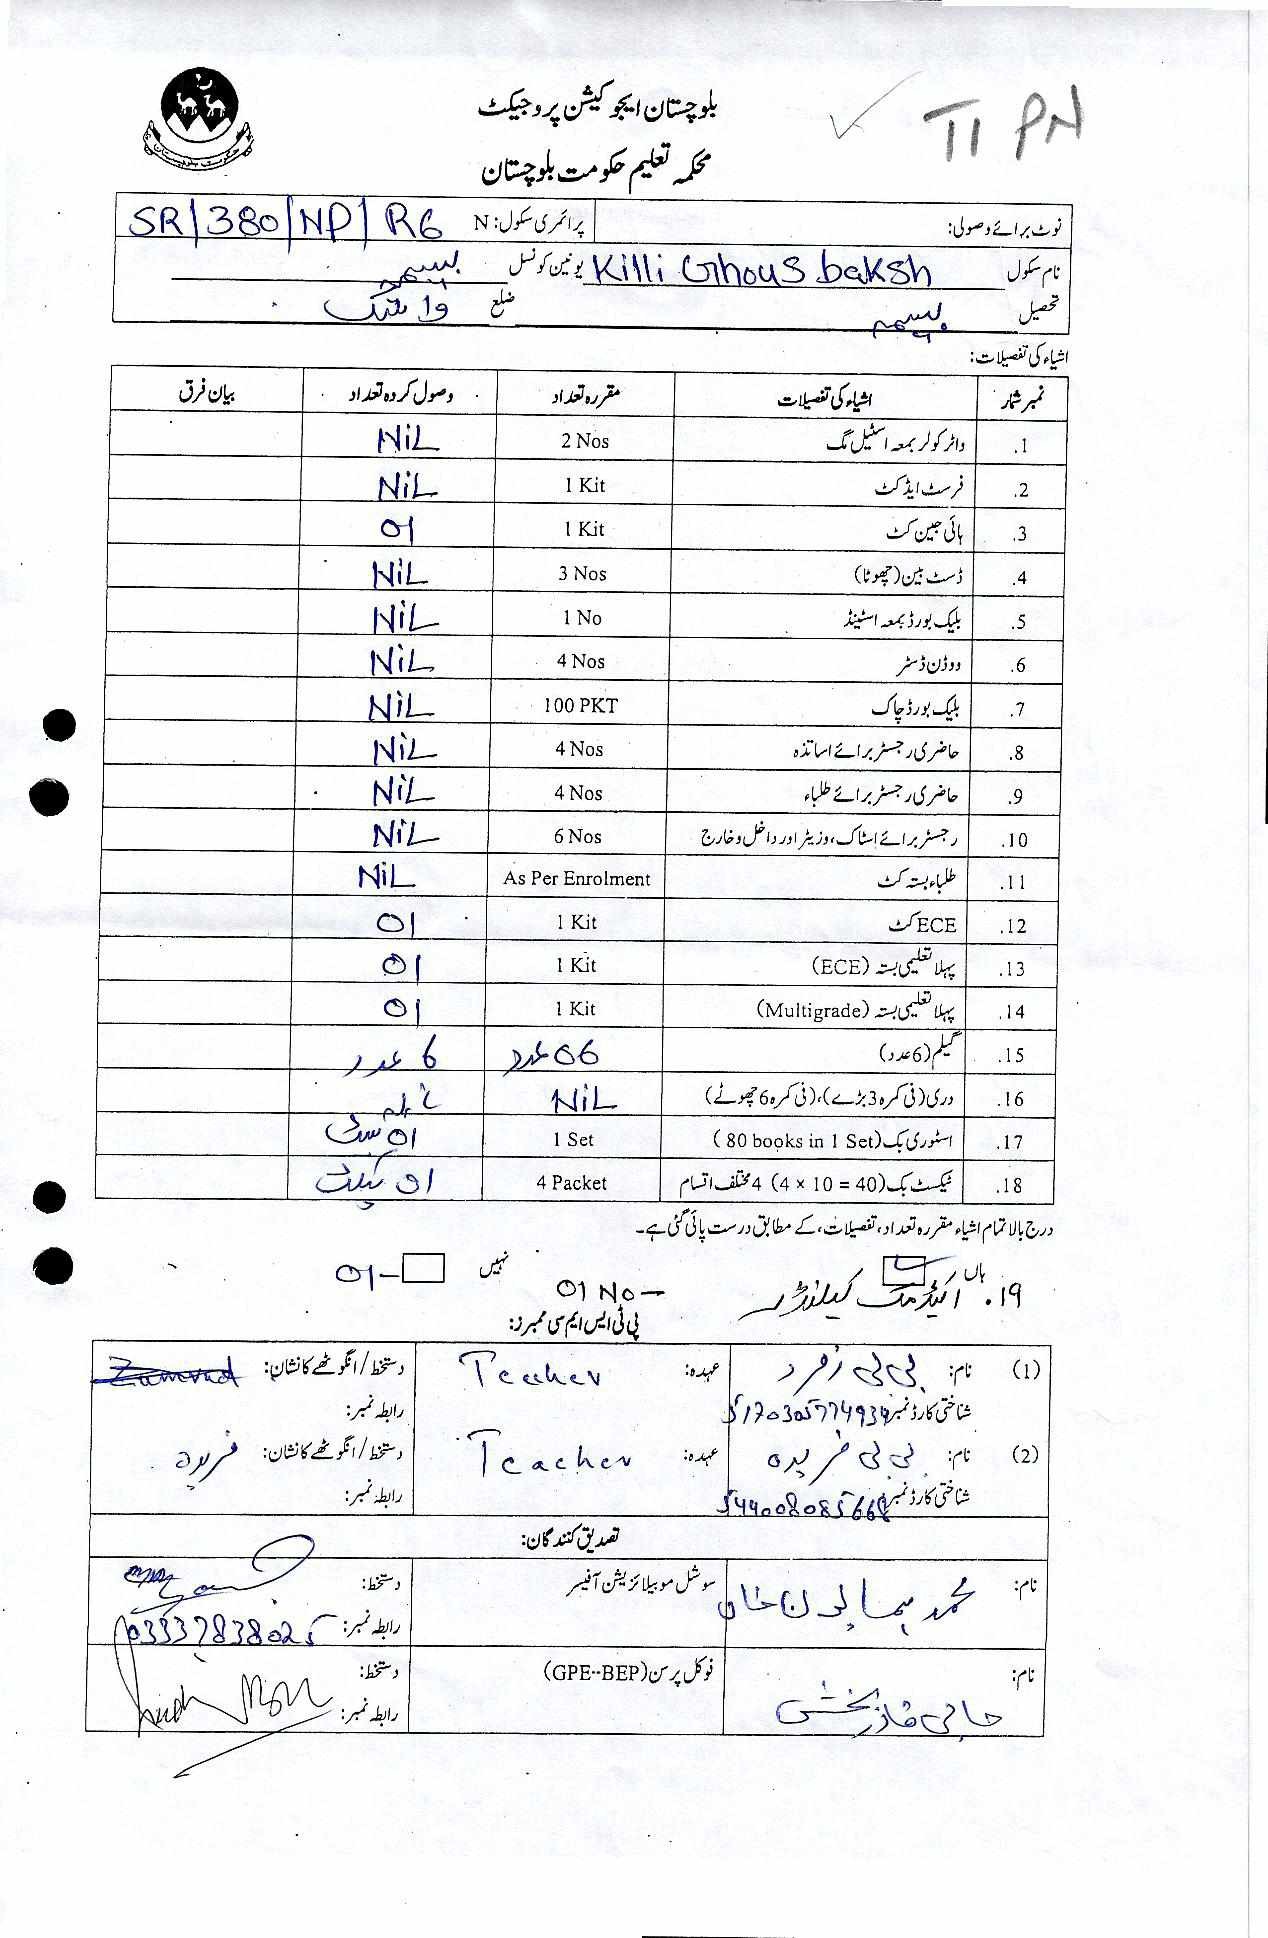 بلوچستان ایجوکیشن پروجیکٹ
TI PN
محکمہ تعلیم حکومت بلوچستان
حکومت بلوچستان
نوٹ برائے وصولی: پرائمری سکول: N SR/380/NP/R6
نام سکول Killi Ghous baksh یونین کونسل بسیمہ
تحصیل بسیمہ ضلع واشک
اشیاء کی تفصیلات:
نمبر شمار اشیاء کی تفصیلات مقررہ تعداد وصول کردہ تعداد بیان فرق
1. واٹر کولر بمعہ اسٹیل مگ 2 Nos NiL
2. فرسٹ ایڈ کٹ 1 Kit NiL
3. ہائی جین کٹ 1 Kit 01
4. ڈسٹ بین (چھوٹا) 3 Nos NiL
5. بلیک بورڈ بمعہ اسٹینڈ 1 No NiL
6. ووڈن ڈسٹر 4 Nos NiL
7. بلیک بورڈ چاک 100 PKT NiL
8. حاضری رجسٹر برائے اساتذہ 4 Nos NiL
9. حاضری رجسٹر برائے طلباء 4 Nos NiL
10. رجسٹر برائے اسٹاک، وزیٹر اور داخل و خارج 6 Nos NiL
11. طلباء بستہ کٹ As Per Enrolment NiL
12. ECE کٹ 1 Kit 01
13. پہلا تعلیمی بستہ (ECE) 1 Kit 01
14. پہلا تعلیمی بستہ (Multigrade) 1 Kit 01
15. گیم (6 عدد) 06 عدد 6 عدد
16. دری (فی کمرہ 3 بڑے)، (فی کمرہ 6 چھوٹے) NiL
17. اسٹوری بک (80 books in 1 Set) 1 Set 01 سیٹ
18. ٹیکسٹ بک (4 x 10 = 40) 4 مختلف اقسام 4 Packet 01 پیکٹ
درج بالا تمام اشیاء مقررہ تعداد، تفصیلات، کے مطابق درست پائی گئی ہے۔
ہاں نہیں 01-
۱۹. اکیڈمک کیلنڈر 01 No -
پی ٹی ایس ایم سی ممبرز:
(1) نام: بی بی زمرد عہدہ: Teacher دستخط/انگوٹھے کا نشان: Zumrud
شناختی کارڈ نمبر رابطہ نمبر:
(2) نام: بی بی فریدہ عہدہ: Teacher دستخط/انگوٹھے کا نشان: فریدہ
شناختی کارڈ نمبر رابطہ نمبر:
تصدیق کنندگان:
نام: محمد ہمایون خان سوشل موبیلائزیشن آفیسر دستخط:
رابطہ نمبر: 03337838025
نام: حاجی قادر بخش فوکل پرسن (GPE--BEP) دستخط:
رابطہ نمبر: